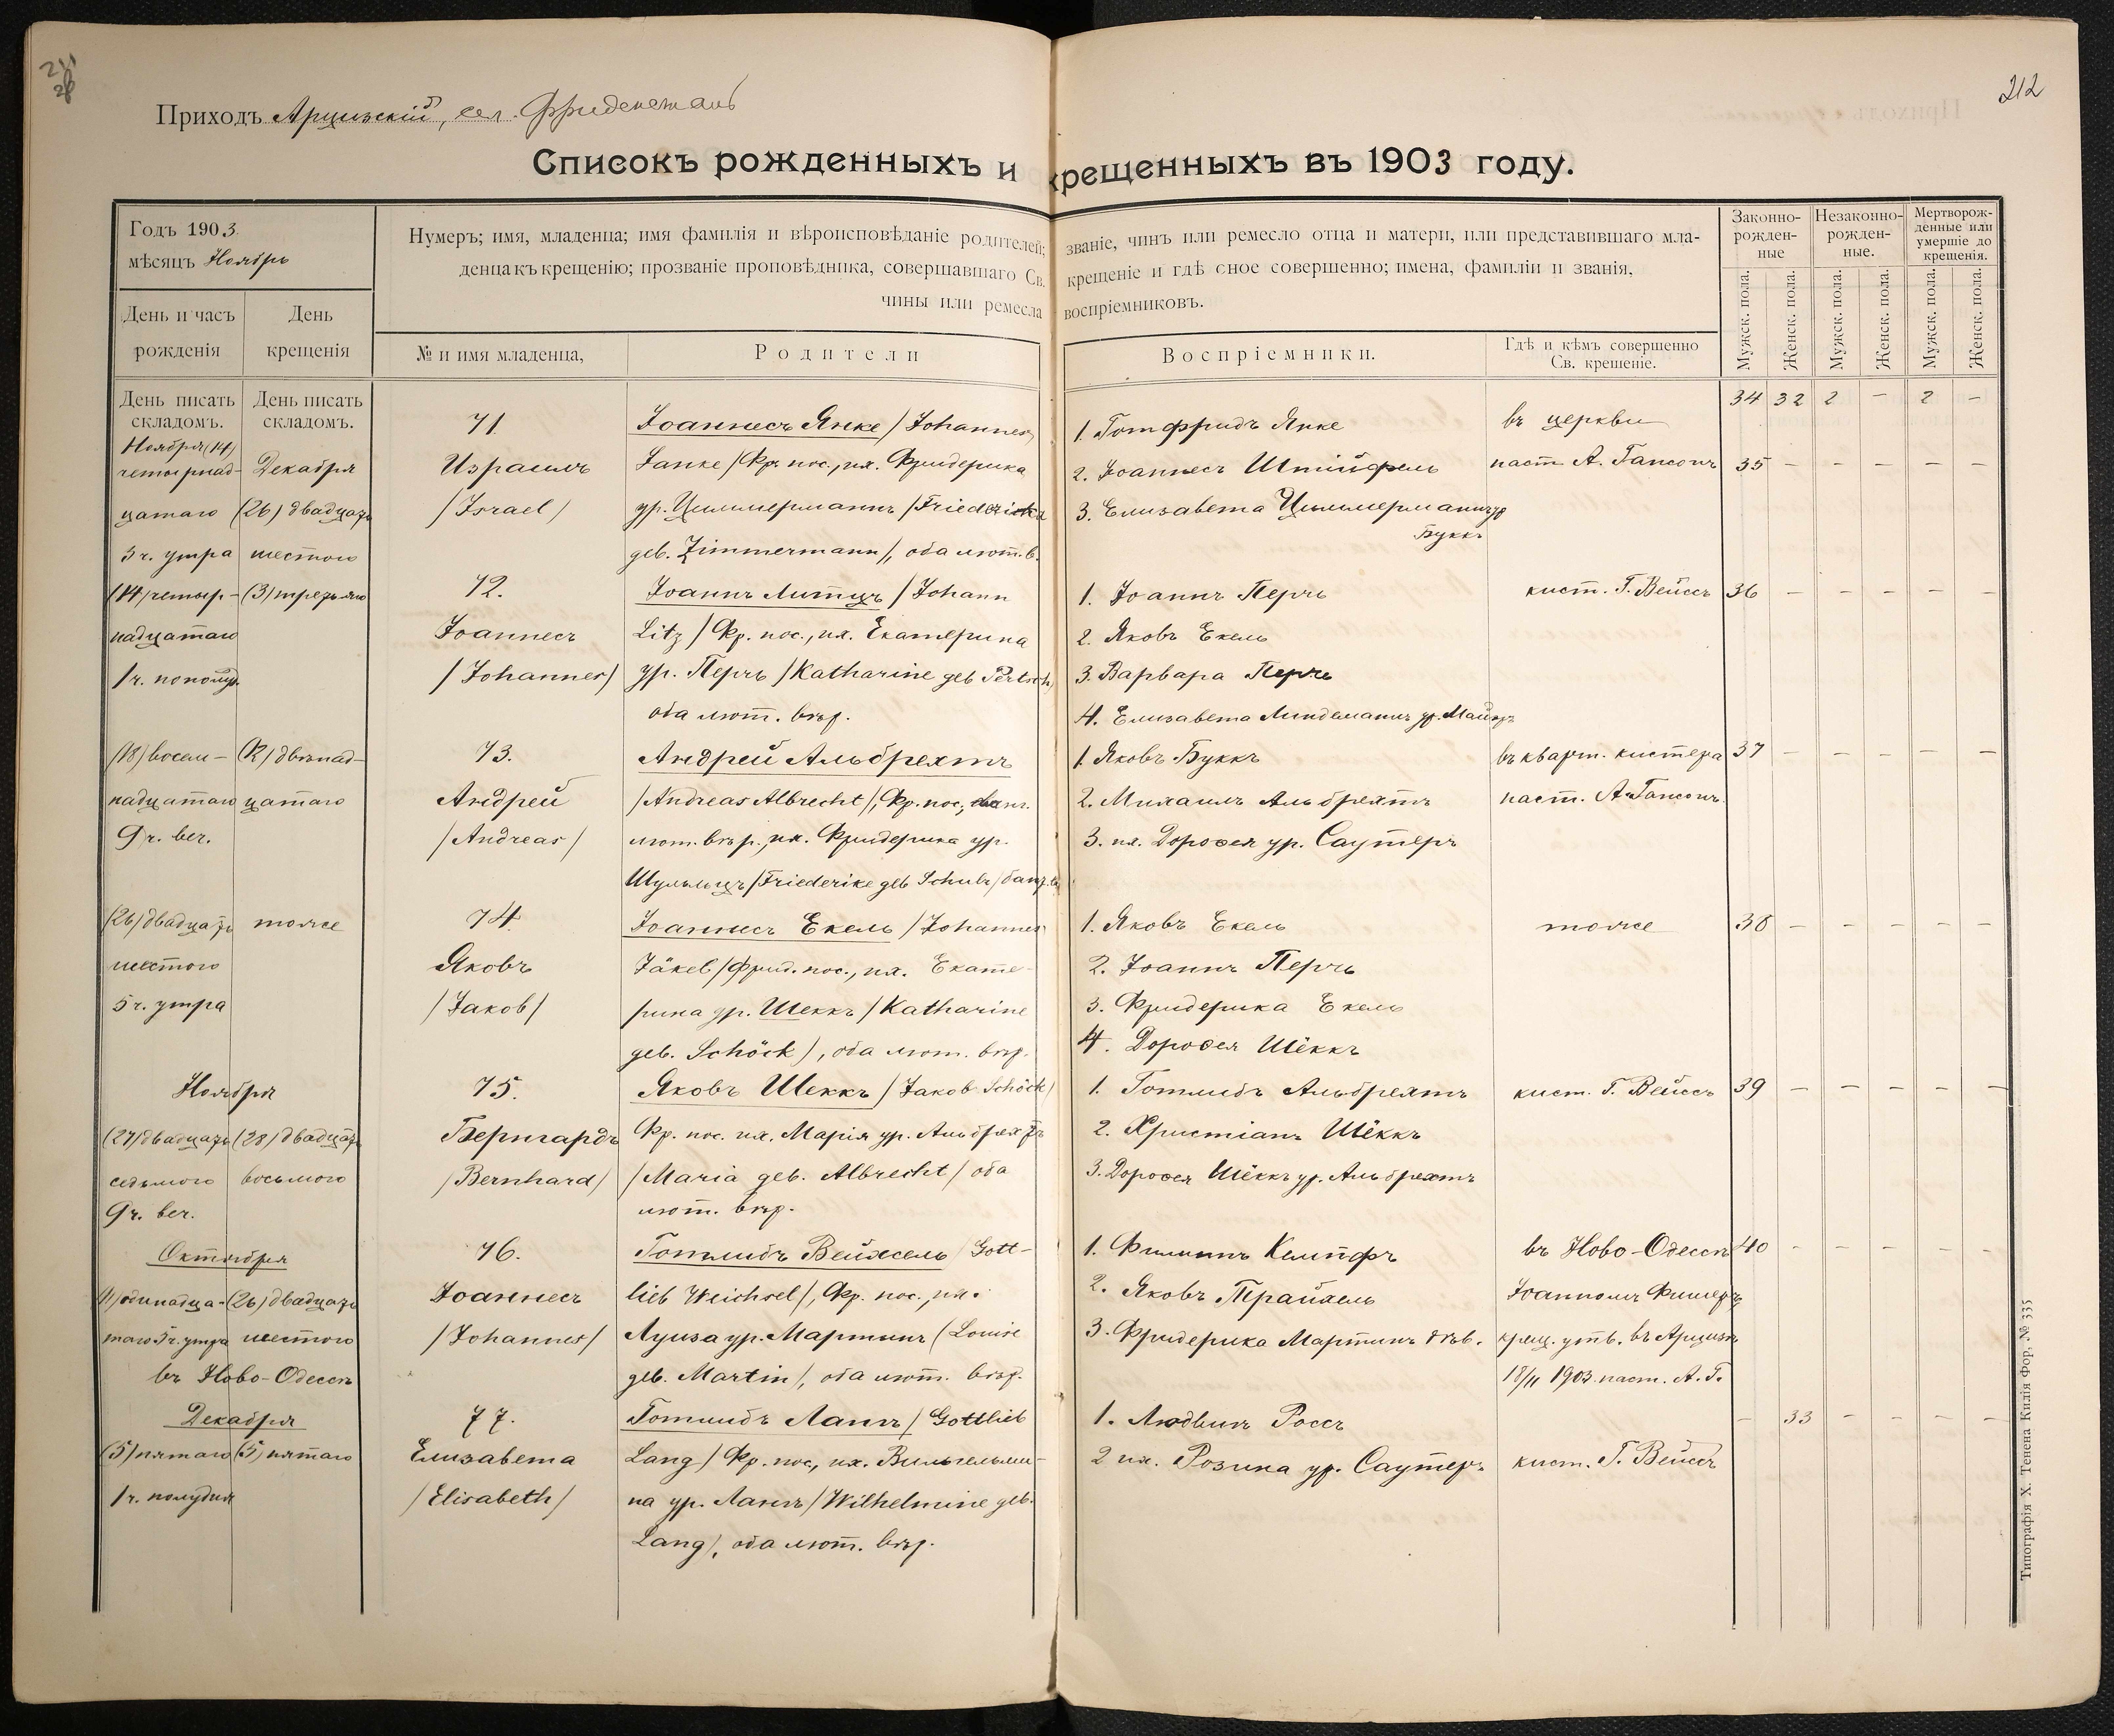 212
Приходъ Арцизскій, сел. Фриденсталь
Списокъ рожденныхъ и крещенныхъ въ 1903 году.
Годъ 1903.
мѣсяцъ Ноябрь
День и часъ рожденія
День крещенія
Нумеръ; имя, младенца; имя фамилія и вѣроисповѣданіе родителей; званіе, чинъ или ремесло отца и матери, или представившаго мла-
денца къ крещенію; прозваніе проповѣдника, совершавшаго Св. крещеніе и гдѣ оное совершенно; имена, фамиліи и званія,
чины или ремесла воспріемниковъ.
№ и имя младенца,
Родители
Воспріемники.
Гдѣ и кѣмъ совершенно
Св. крешеніе.
Законно-
рожден-
ные
Незаконно-
рожден-
ные.
Мертворож-
денные или
умершіе до
крещенія.
Мужск. пола.
Женск. пола.
Мужск. пола.
Женск. пола.
Мужск. пола.
Женск. пола.
День писать
складомъ.
День писать
складомъ.
34 32 2 — 2 —
Ноября (14)
четырнад-
цатаго
3 ч. утра
Декабря
(26) двадцать
шестого
71.
Израиль
/Israel/
Іоаннесъ Янке / Johannes
Janke / Фр. пос., их. Фридерика
ур. Циммерманнъ / Friedericka
geb. Zimmermann /, оба лют. в.
1. Готфридъ Янке
2. Іоаннесъ Штійфель
3. Елизавета Циммерманнъ ур
Буккъ
въ церкви
паст. А. Гансонъ
35 — — — — —
(14) четыр-
надцатаго
1 ч. пополуд.
(3) третьяго
72.
Іоаннесъ
/Johannes/
Іоаннъ Литцъ / Johann
Litz / Фр. пос., их. Екатерина
ур. Перчъ / Katharine geb Pertsch /
оба лют. вѣр.
1. Іоаннъ Перчъ
2. Яковъ Екель
3. Варвара Перчъ
4. Елизавета Линдеманнъ ур. Майеръ
кист. Г. Вейссъ
36 — — — — —
(18) восем-
надцатаго
9 ч. веч.
(12) двѣнад-
цатаго
73.
Андрей
/Andreas/
Андрей Альбрехтъ
/Andreas Albrecht/, Фр. пос.,
лют. вѣр., их. Фридерика ур.
Шульцъ / Friederike geb Schulz /
1. Яковъ Буккъ
2. Михаилъ Альбрехтъ
3. их. Дороѳея ур. Саутеръ
въ кварт. кистера
паст. А. Гансонъ.
37 — — — — —
(26) двадцать
шестого
5 ч. утра
тоже
74.
Яковъ
/Jakob/
Іоаннесъ Екель / Johannes
Jäkel / Фрид. пос., их. Екате-
рина ур. Шеккъ / Katharine
geb. Schöck), оба лют. вѣр.
1. Яковъ Екель
2. Іоаннъ Перчъ
3. Фридерика Екель
4. Дороѳея Шёккъ
тоже
38 — — — — —
Ноября
(27) двадцать
седьмого
9 ч. веч.
(28) двадцать
восьмого
75.
Бернгардъ
/Bernhard/
Яковъ Шеккъ / Jakob Schöck /
Фр. пос. их. Марія ур. Альбрехтъ
/Maria geb. Albrecht/ оба
лют. вѣр.
1. Готлибъ Альбрехтъ
2. Христіанъ Шёккъ
3. Дороѳея Шёккъ ур. Альбрехтъ
кист. Г. Вейссъ
39 — — — — —
Октября
(11) одинадца-
таго 5 ч. утра
въ Ново-Одессѣ
(26) двадцать
шестого
76.
Іоаннесъ
/Johannes/
Готлибъ Вейхсель / Gott-
lieb Weichsel /, Фр. пос., их.
Луиза ур. Мартинъ (Louise
geb. Martin /, оба лют. вѣр.
1. Филиппъ Кемпфъ
2. Яковъ Трайхель
3. Фридерика Мартинъ дѣв.
въ Ново-Одессѣ
Іоанномъ Фишеръ
крещ. утв. въ Арцизѣ
18/11 1903. паст. А. Г.
40 — — — — —
Декабря
(5) пятаго
1 ч. полудня
(5) пятаго
77.
Елизавета
/Elisabeth/
Готлибъ Лангъ / Gottlieb
Lang / Фр. пос., их. Вильгельми-
на ур. Лангъ / Wilhelmine geb.
Lang), оба лют. вѣр.
1. Людвигъ Россъ
2 их. Розина ур. Саутеръ
кист. Г. Вейссъ
— 33 — — — —
Типографія Х. Тенена Килія Фор, № 335